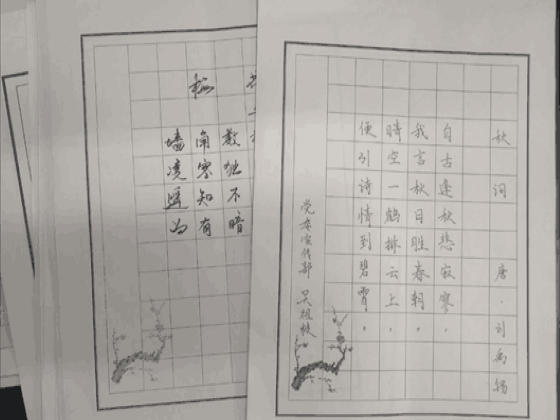 秋词 唐·刘禹锡
自古逢秋悲寂寥，
我言秋日胜春朝。
晴空一鹤排云上，
便引诗情到碧霄。
党委宣传部
梅
墙角数
凌寒独
遥知不
为有暗